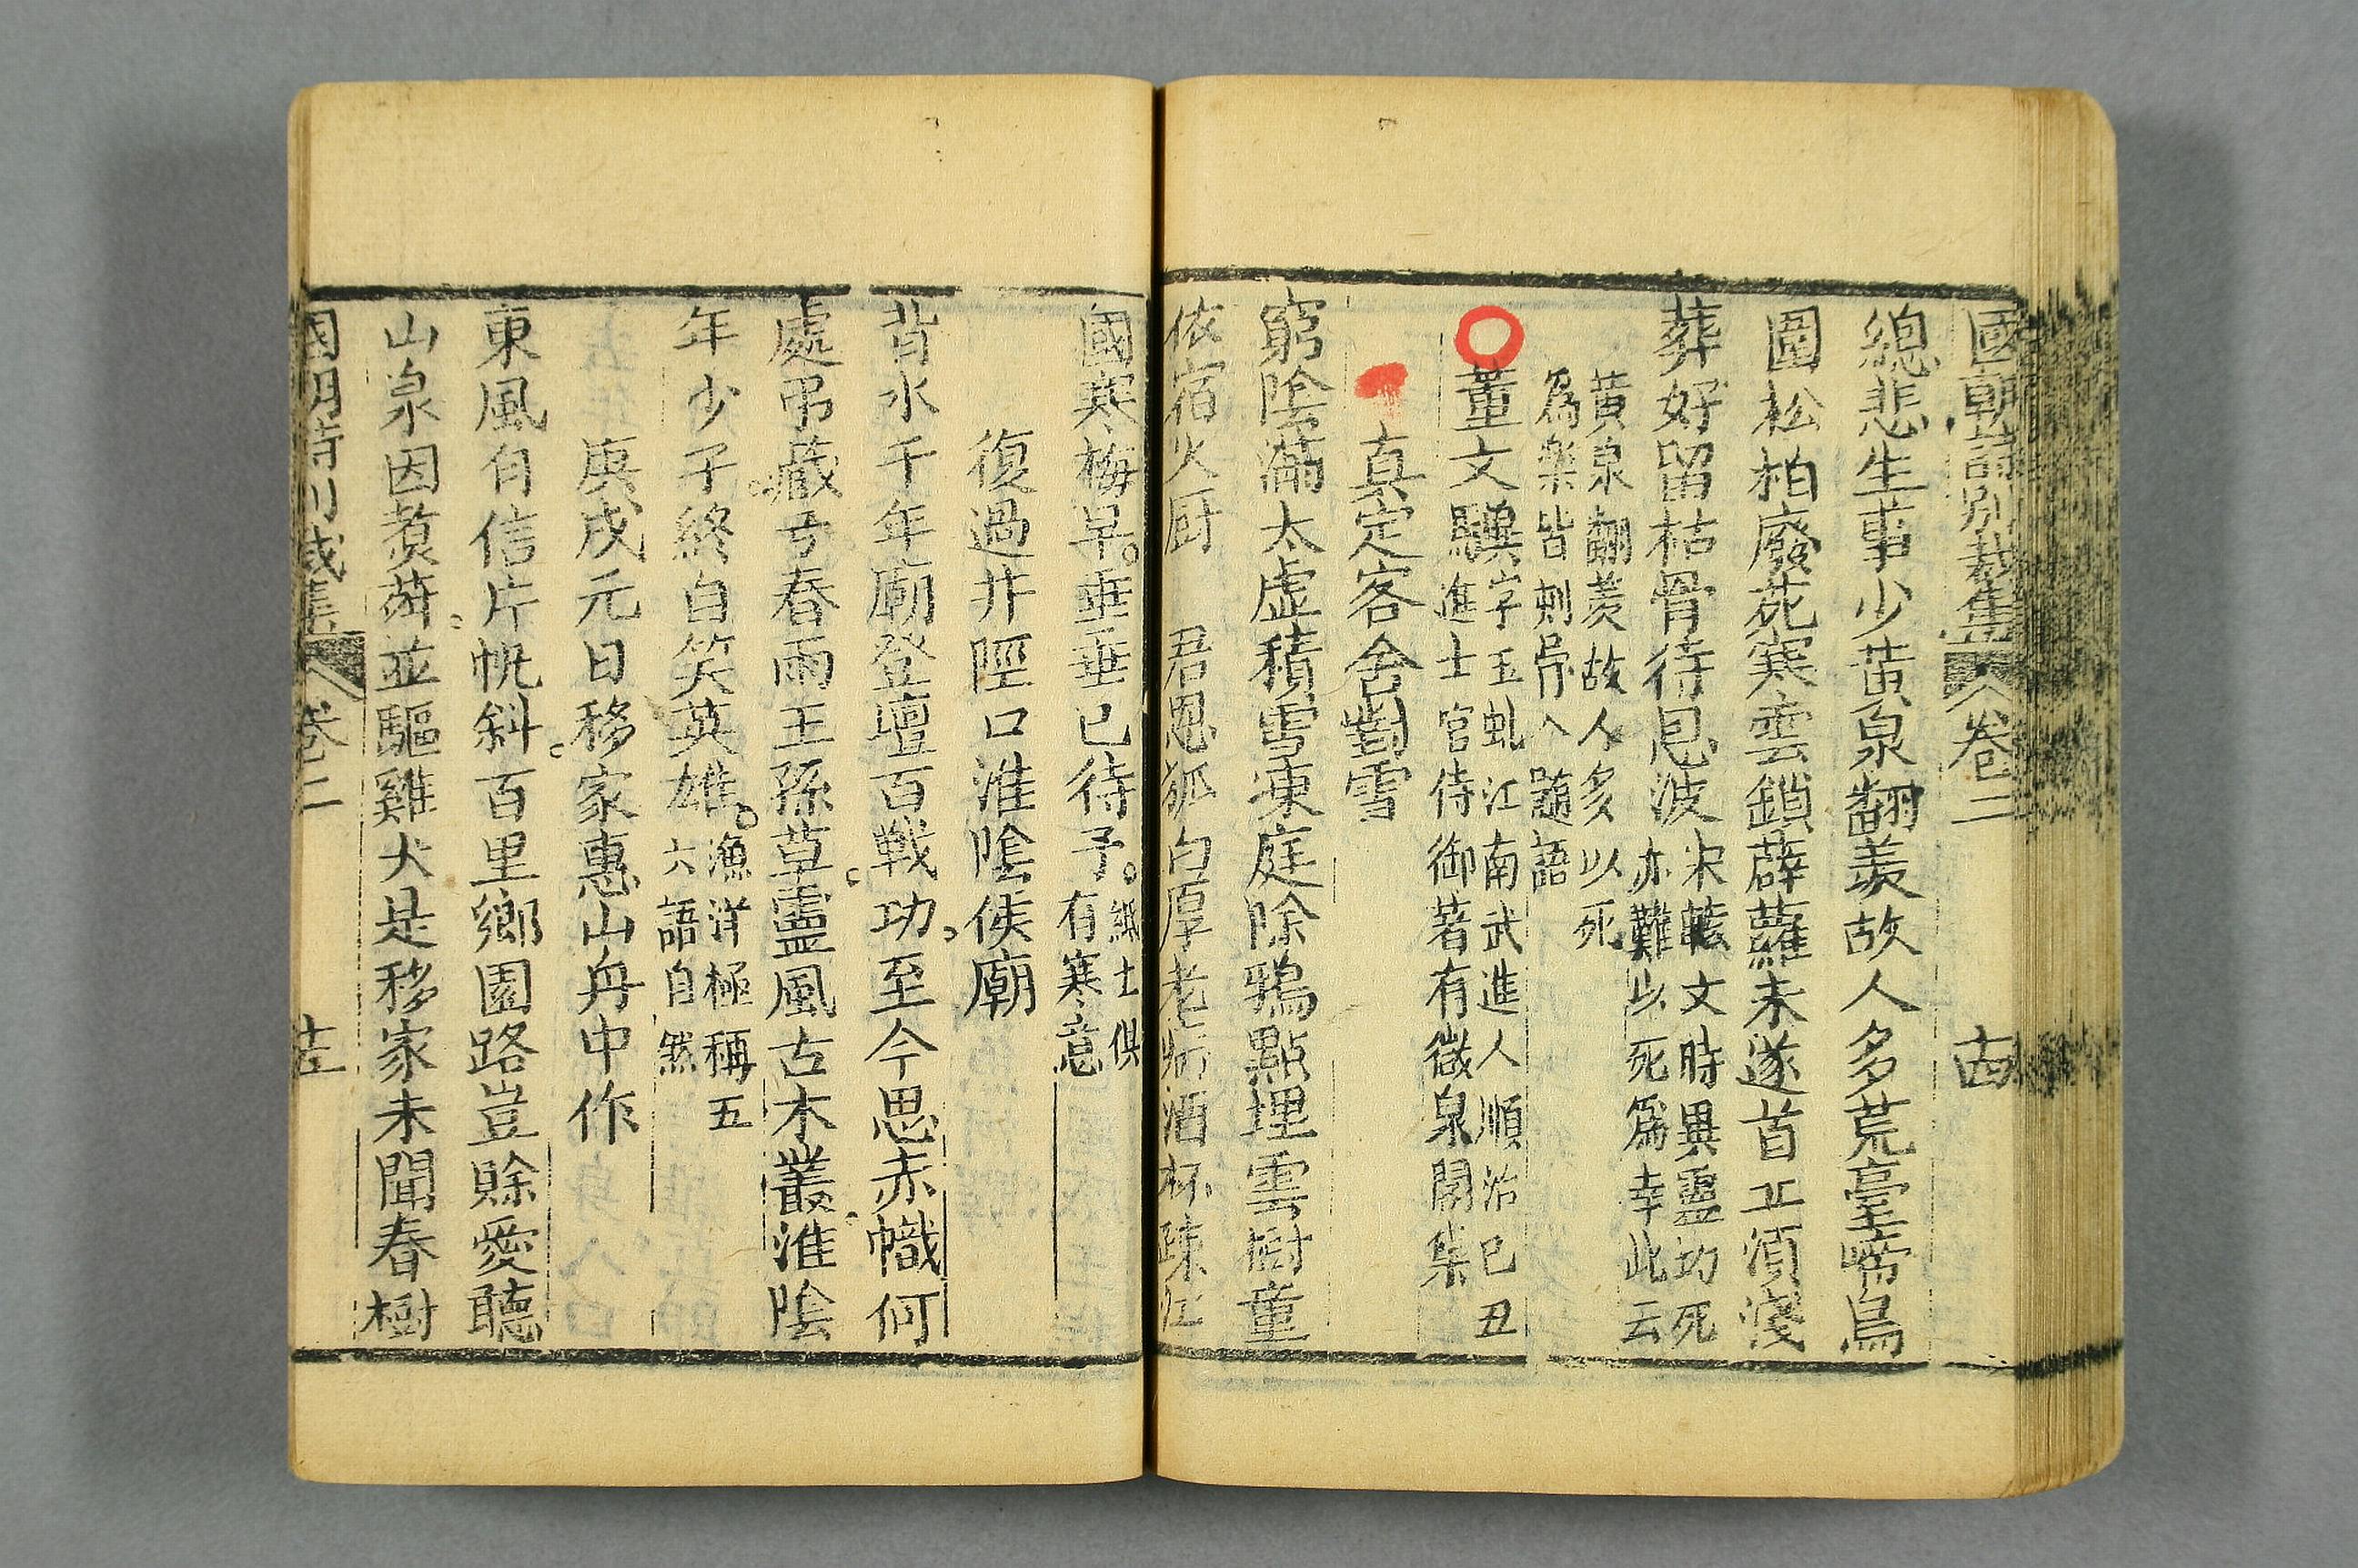 國朝詩別裁集 卷二 十四
總悲生事少黃泉翻羨故人多荒臺啼鳥
圖松柏廢苑寒雲鎖薜蘿未遂首丘須淺
葬好留枯骨待恩波宋轅文時異靈均死
亦難以死爲幸此云
黃泉翻羨故人多以死
爲樂皆刺骨入髓語
董文驥字玉虬江南武進人順治己丑
進士官侍御著有微泉閣集
真定客舍對雪
窮陰滿太虛積雪凍庭除鴉點埋雲樹童
依宿火厨君恩狐白厚老病酒杯疎江
國寒梅早垂垂已待予紙上俱
有寒意
復過井陘口淮陰侯廟
背水千年廟登壇百戰功至今思赤幟何
處弔藏弓春雨王孫草靈風古木叢淮陰
年少子終自笑英雄漁洋極稱五
六語自然
庚戌元日移家惠山舟中作
東風有信片帆斜百里鄉園路豈賒愛聽
山泉因煑茗並驅雞犬是移家未聞春樹
卷二